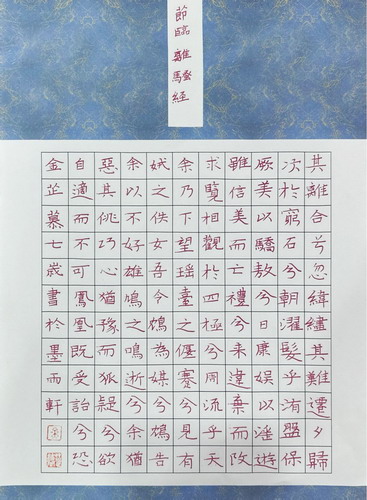 節臨離騷經
其離合兮忽緯繣其難遷夕歸
次於窮石兮朝濯髮乎洧盤保
厥美以驕敖兮日康娛以淫遊
雖信美而亡禮兮來違棄而改
求覽相觀於四極兮周流乎天
余乃下望瑶臺之偃蹇兮見有
娀之佚女吾令鴆為媒兮鴆告
余以不好雄鳩之鳴逝兮余猶
惡其佻巧心猶豫而狐疑兮欲
自適而不可鳳凰既受詒兮恐
金芷慕七歲書於墨雨軒